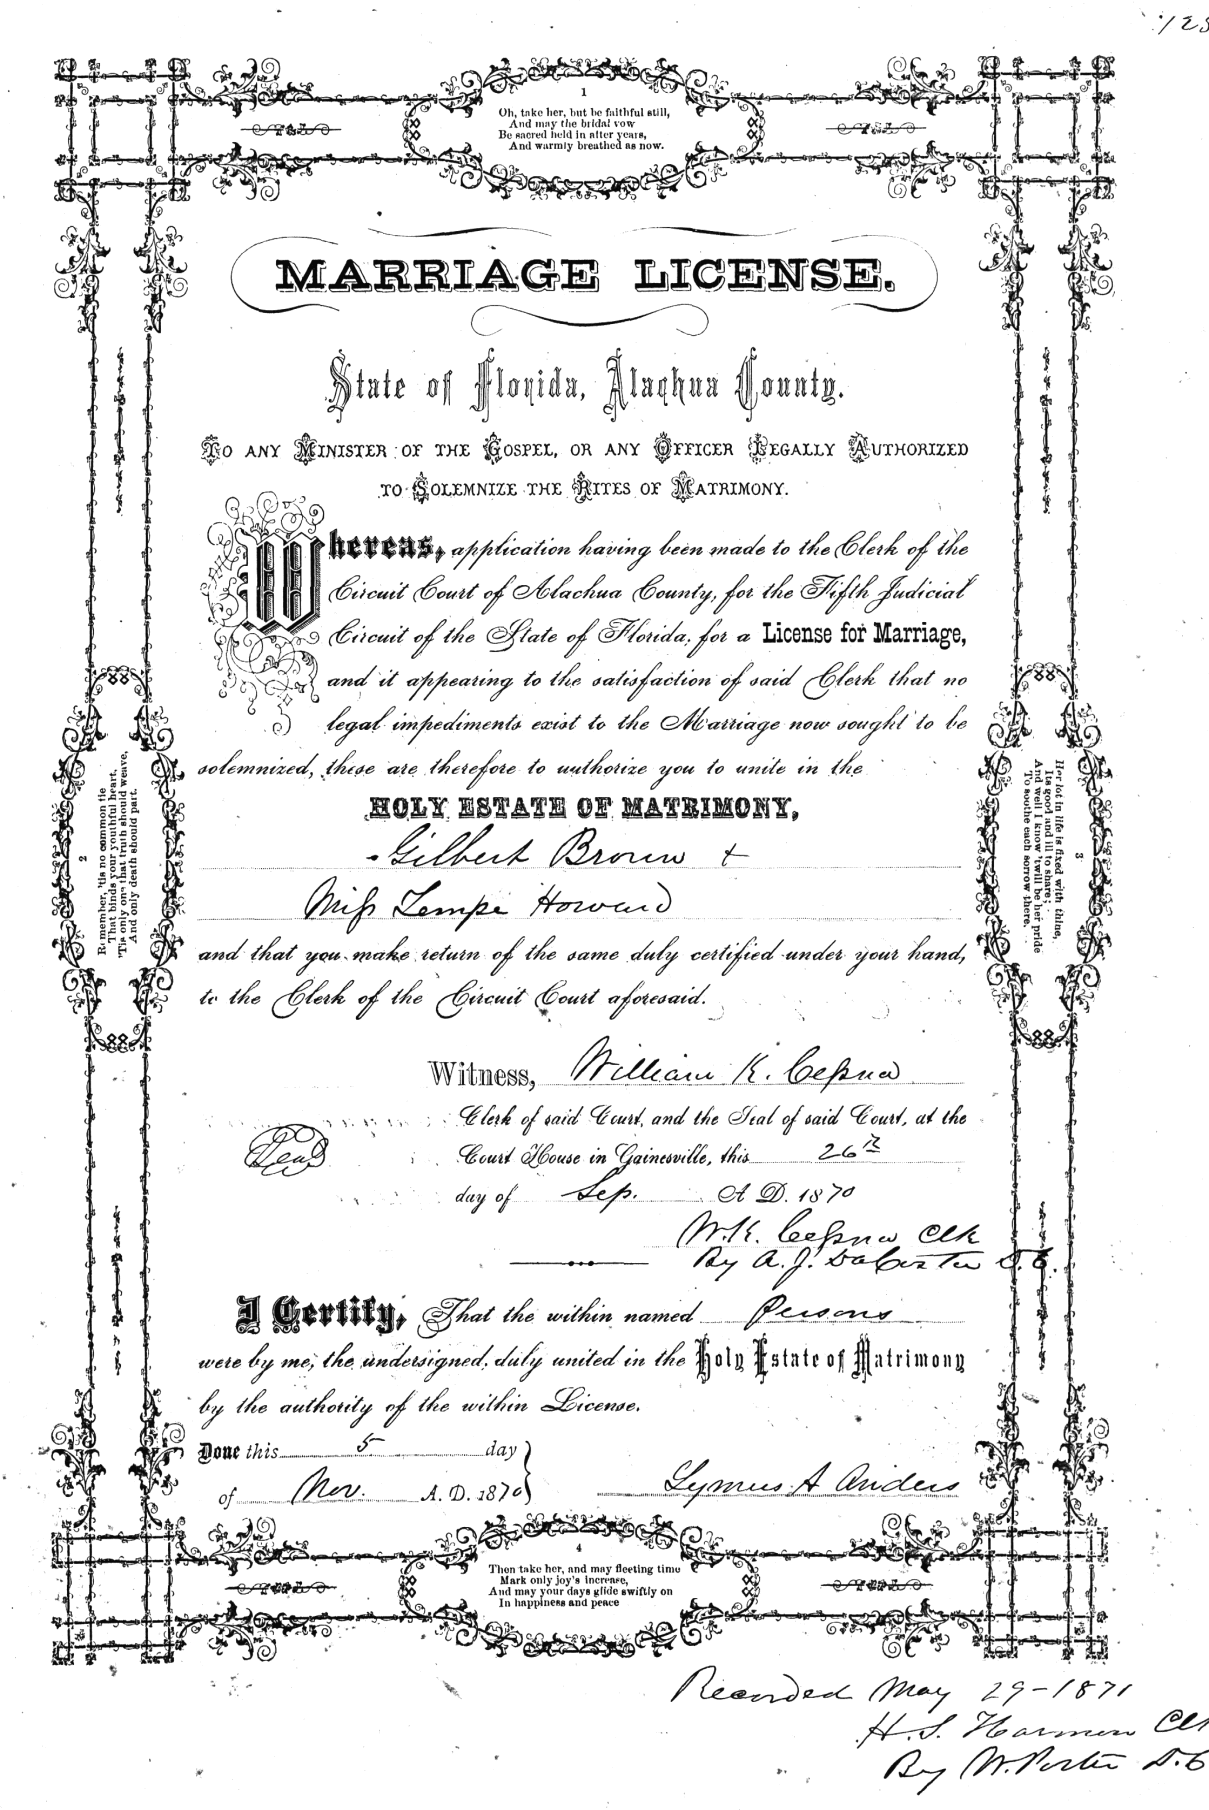 1
Oh, take her, but be faithful still,
And may the bridal vow
Be sacred held in after years,
And warmly breathed as now.
MARRIAGE LICENSE.
State of Florida, Alachua County.
TO ANY MINISTER OF THE GOSPEL, OR ANY OFFICER LEGALLY AUTHORIZED
TO SOLEMNIZE THE RITES OF MATRIMONY.
Whereas, application having been made to the Clerk of the
Circuit Court of Alachua County, for the Fifth Judicial
Circuit of the State of Florida, for a License for Marriage,
and it appearing to the satisfaction of said Clerk that no
legal impediments exist to the Marriage now sought to be
solemnized, these are therefore to authorize you to unite in the
HOLY ESTATE OF MATRIMONY,
Gilbert Brown +
Miss Tempi Howard
and that you make return of the same duly certified under your hand,
to the Clerk of the Circuit Court aforesaid.
2
Remember, 'tis no common tie
That binds your youthful heart,
'Tis only one that truth should weave,
And only death should part.
3
Her lot in life is fixed with thine,
Its good and ill to share;
And well I know 'twill be her pride
To soothe each sorrow there.
Witness, William K. Cessna
Clerk of said Court, and the Seal of said Court, at the
Seal
Court House in Gainesville, this 26th
day of Sep. A D. 1870
W.K. Cessna Clk
By A. J. D. C.
I Certify, That the within named Persons
were by me, the undersigned, duly united in the Holy Estate of Matrimony
by the authority of the within License.
Done this 5 day
of Nov. A. D. 1870
Lymus A Anders
4
Then take her, and may fleeting time
Mark only joy's increase,
And may your days glide swiftly on
In happiness and peace
Recorded May 29-1871
H. S. Harmon Clk
By W. Porter D. C